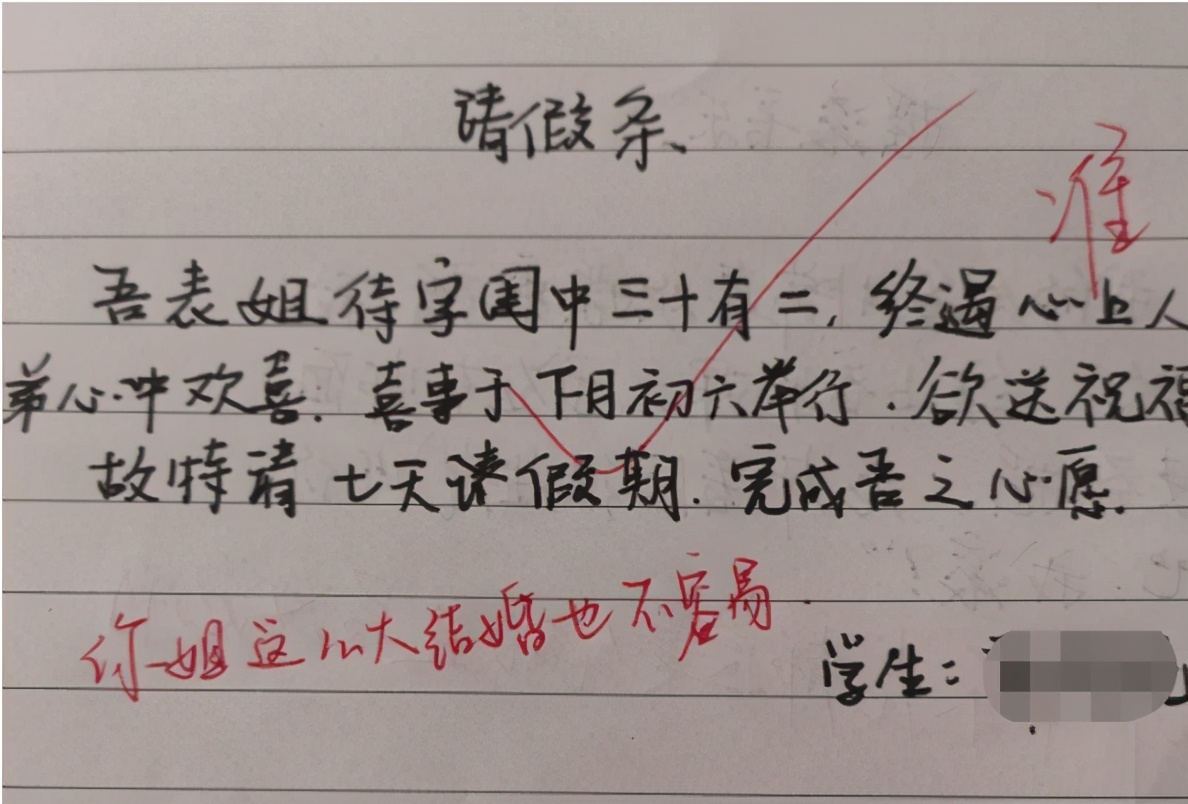 请假条
准
吾表姐待字闺中三十有二,终遇心上人
弟心中欢喜.喜事于下月初六举行.欲送祝福
故特请七天请假期.完成吾之心愿.
你姐这么大结婚也不容易.
学生: